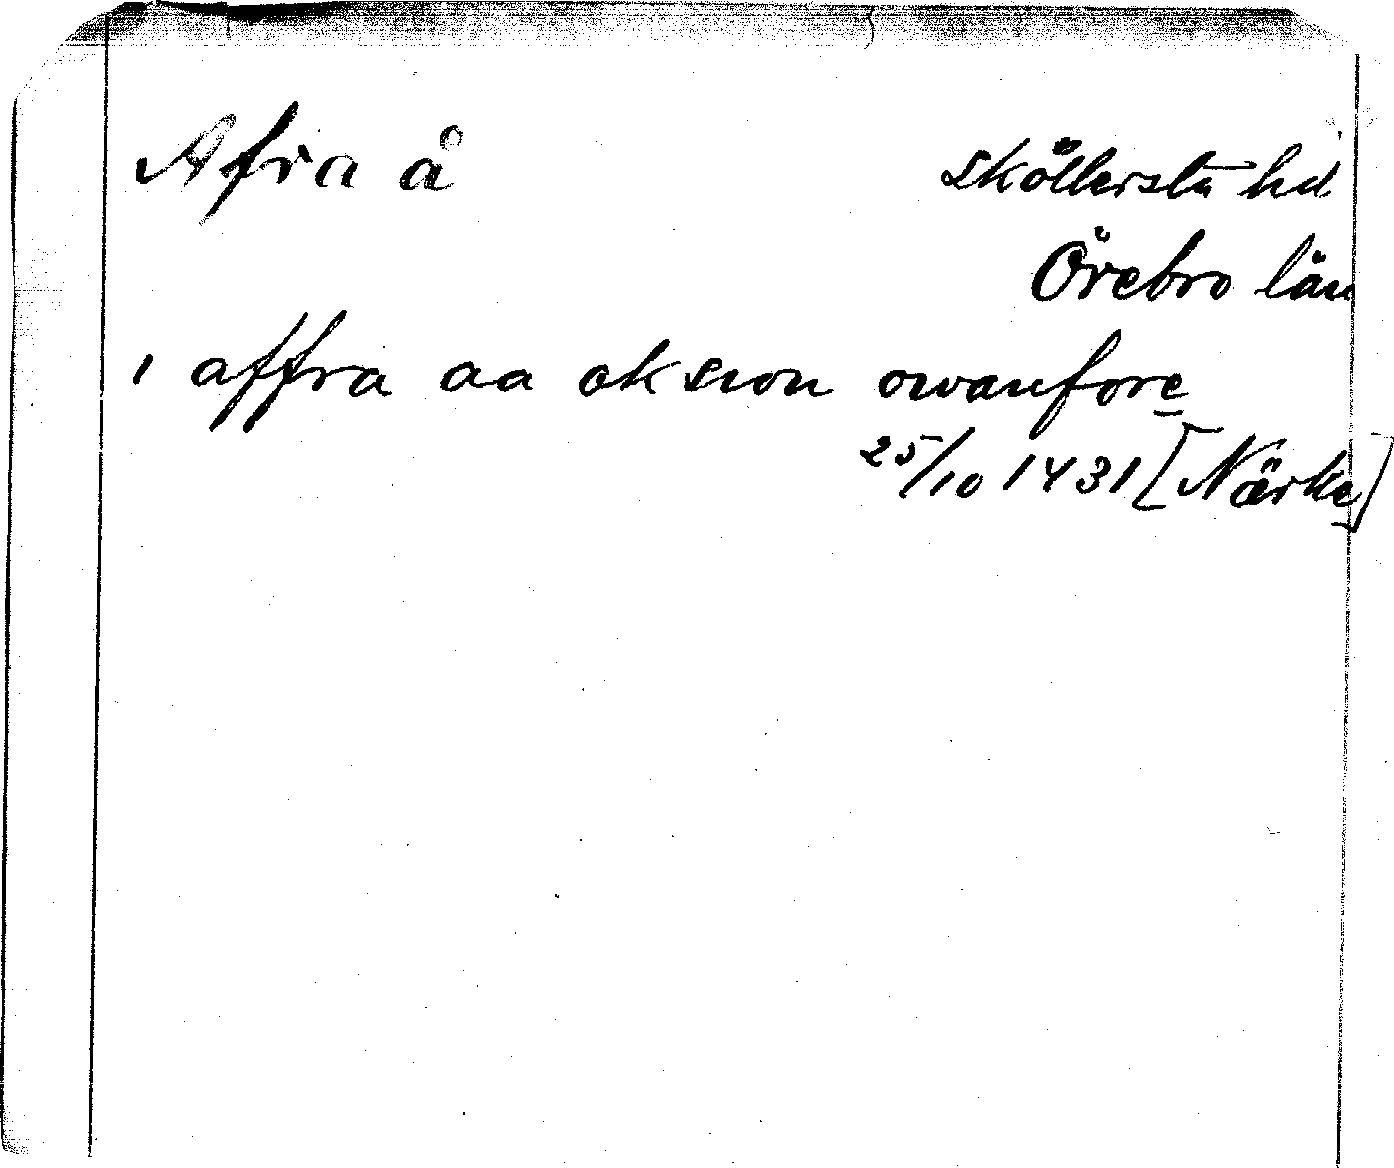 Afra å
Sköllersta hd
Örebro län
i affra aa ok swon owanfore
25/10 1431 [Närke]